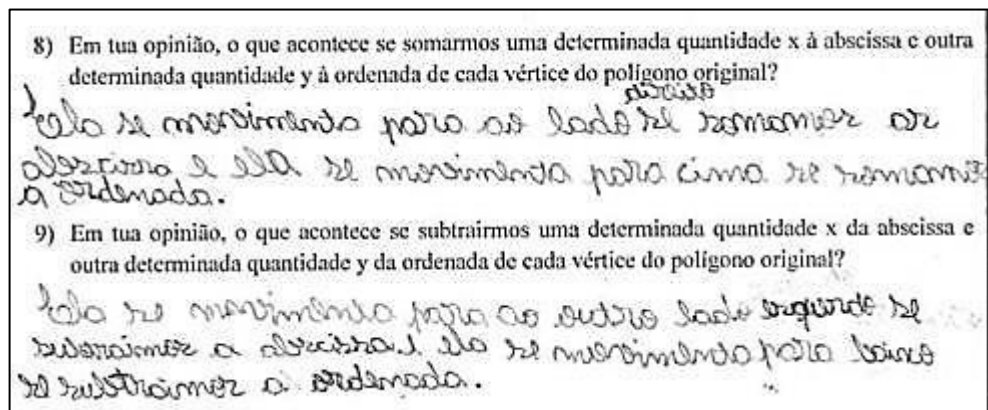 8) Em tua opinião, o que acontece se somarmos uma determinada quantidade x à abscissa e outra
determinada quantidade y à ordenada de cada vértice do polígono original?
direito
Ela se movimenta para ao lado se somamos as
abscissa e ela se movimenta para cima se somamos
a ordenada.
9) Em tua opinião, o que acontece se subtrairmos uma determinada quantidade x da abscissa e
outra determinada quantidade y da ordenada de cada vértice do polígono original?
Ela se movimenta para ao outro lado esquerdo se
subtraimos a abscissa e ela se movimenta para baixo
se subtraimos a ordenada.